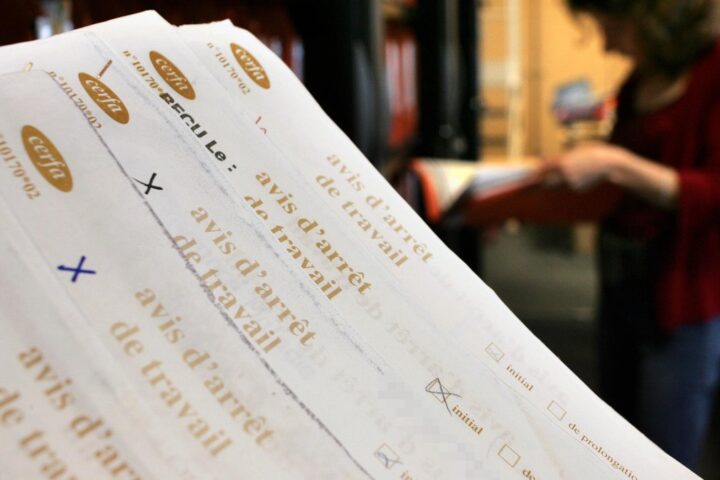 cerfa
n°10170*02
avis d'arrêt
de travail
initial
de prolongatio
cerfa
n°10170*
REÇU Le :
avis d'arrêt
de travail
initial
de
cerfa
n°10170*02
avis d'arrêt
de travail
cerfa
10170*02
avis d'arrêt
de travail
avis d'ar
de tra